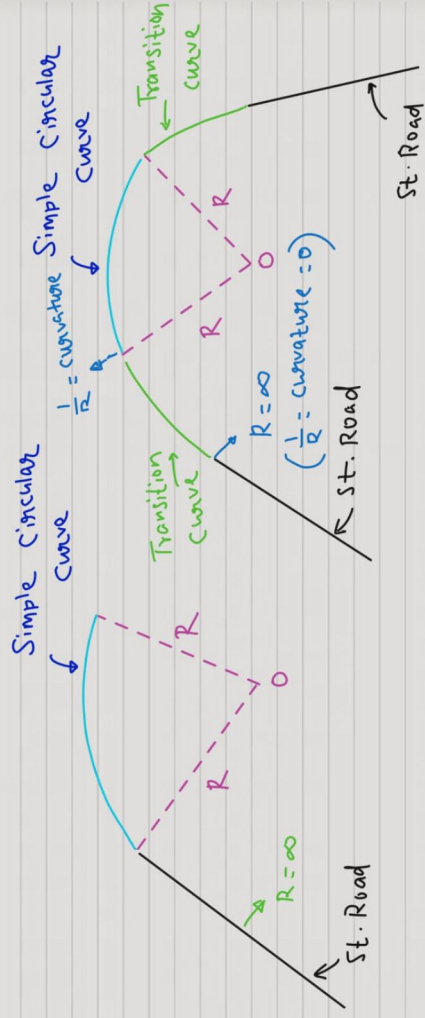 Simple Circular
Curve
R
R
O
R = ∞
St. Road
1/R = curvature
Simple Circular
Curve
Transition
Curve
Transition
Curve
R
R
O
R = ∞
(1/R = curvature = 0)
St. Road
St. Road